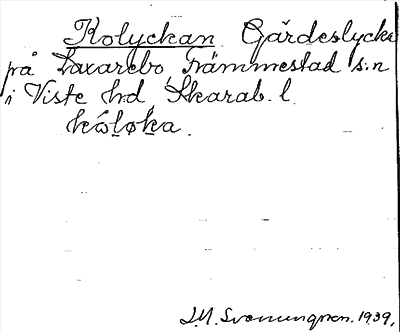 Kolyckan Gärdeslycka
på Laxarebo, Främmestad s:n
i Viste hd Skarab. l.
kóloka.
J.M. Svenungsson. 1939.